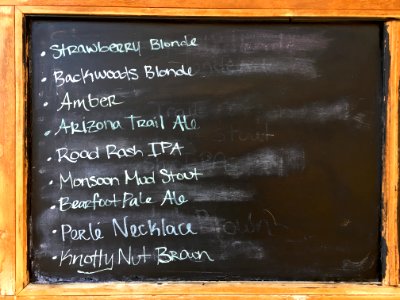 • Strawberry Blonde
• Backwoods Blonde
• Amber
• Arizona Trail Ale
• Road Rash IPA
• Monsoon Mud Stout
• Bearfoot Pale Ale
• Perlé Necklace
• Knotty Nut Brown